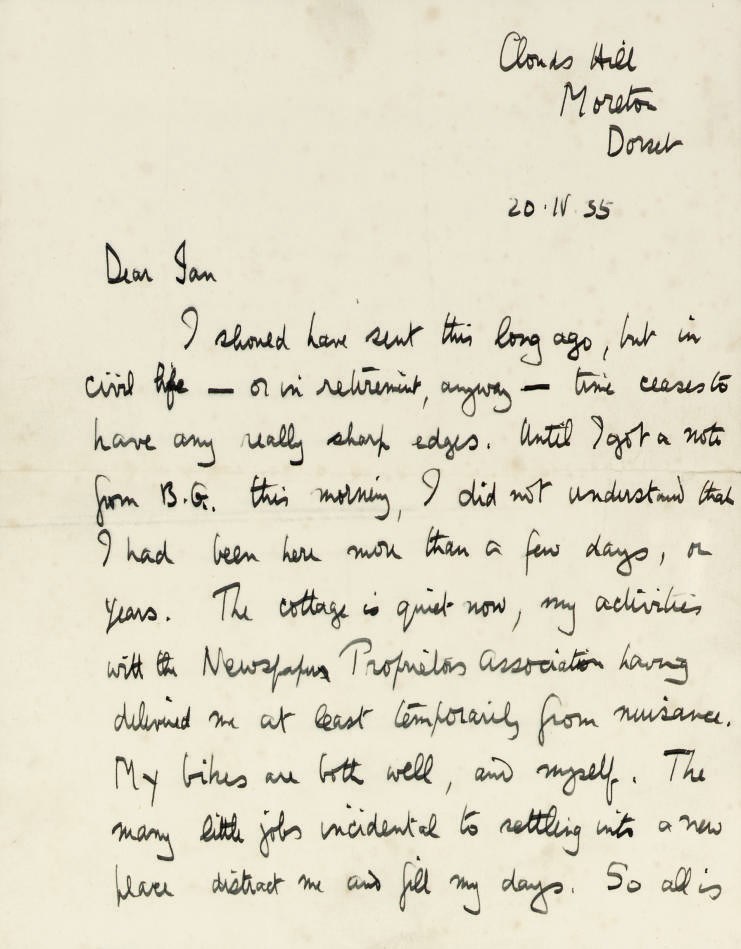 Clouds Hill
Moreton
Dorset
20.IV.35
Dear Ian
I should have sent this long ago, but in
civil life — or in retirement, anyway — time ceases to
have any really sharp edges. Until I got a note
from B.G. this morning, I did not understand that
I had been here more than a few days, or
years. The cottage is quiet now, my activities
with the Newspaper Proprietors Association having
delivered me at least temporarily from nuisance.
My bikes are both well, and myself. The
many little jobs incidental to settling into a new
place distract me and fill my days. So all is